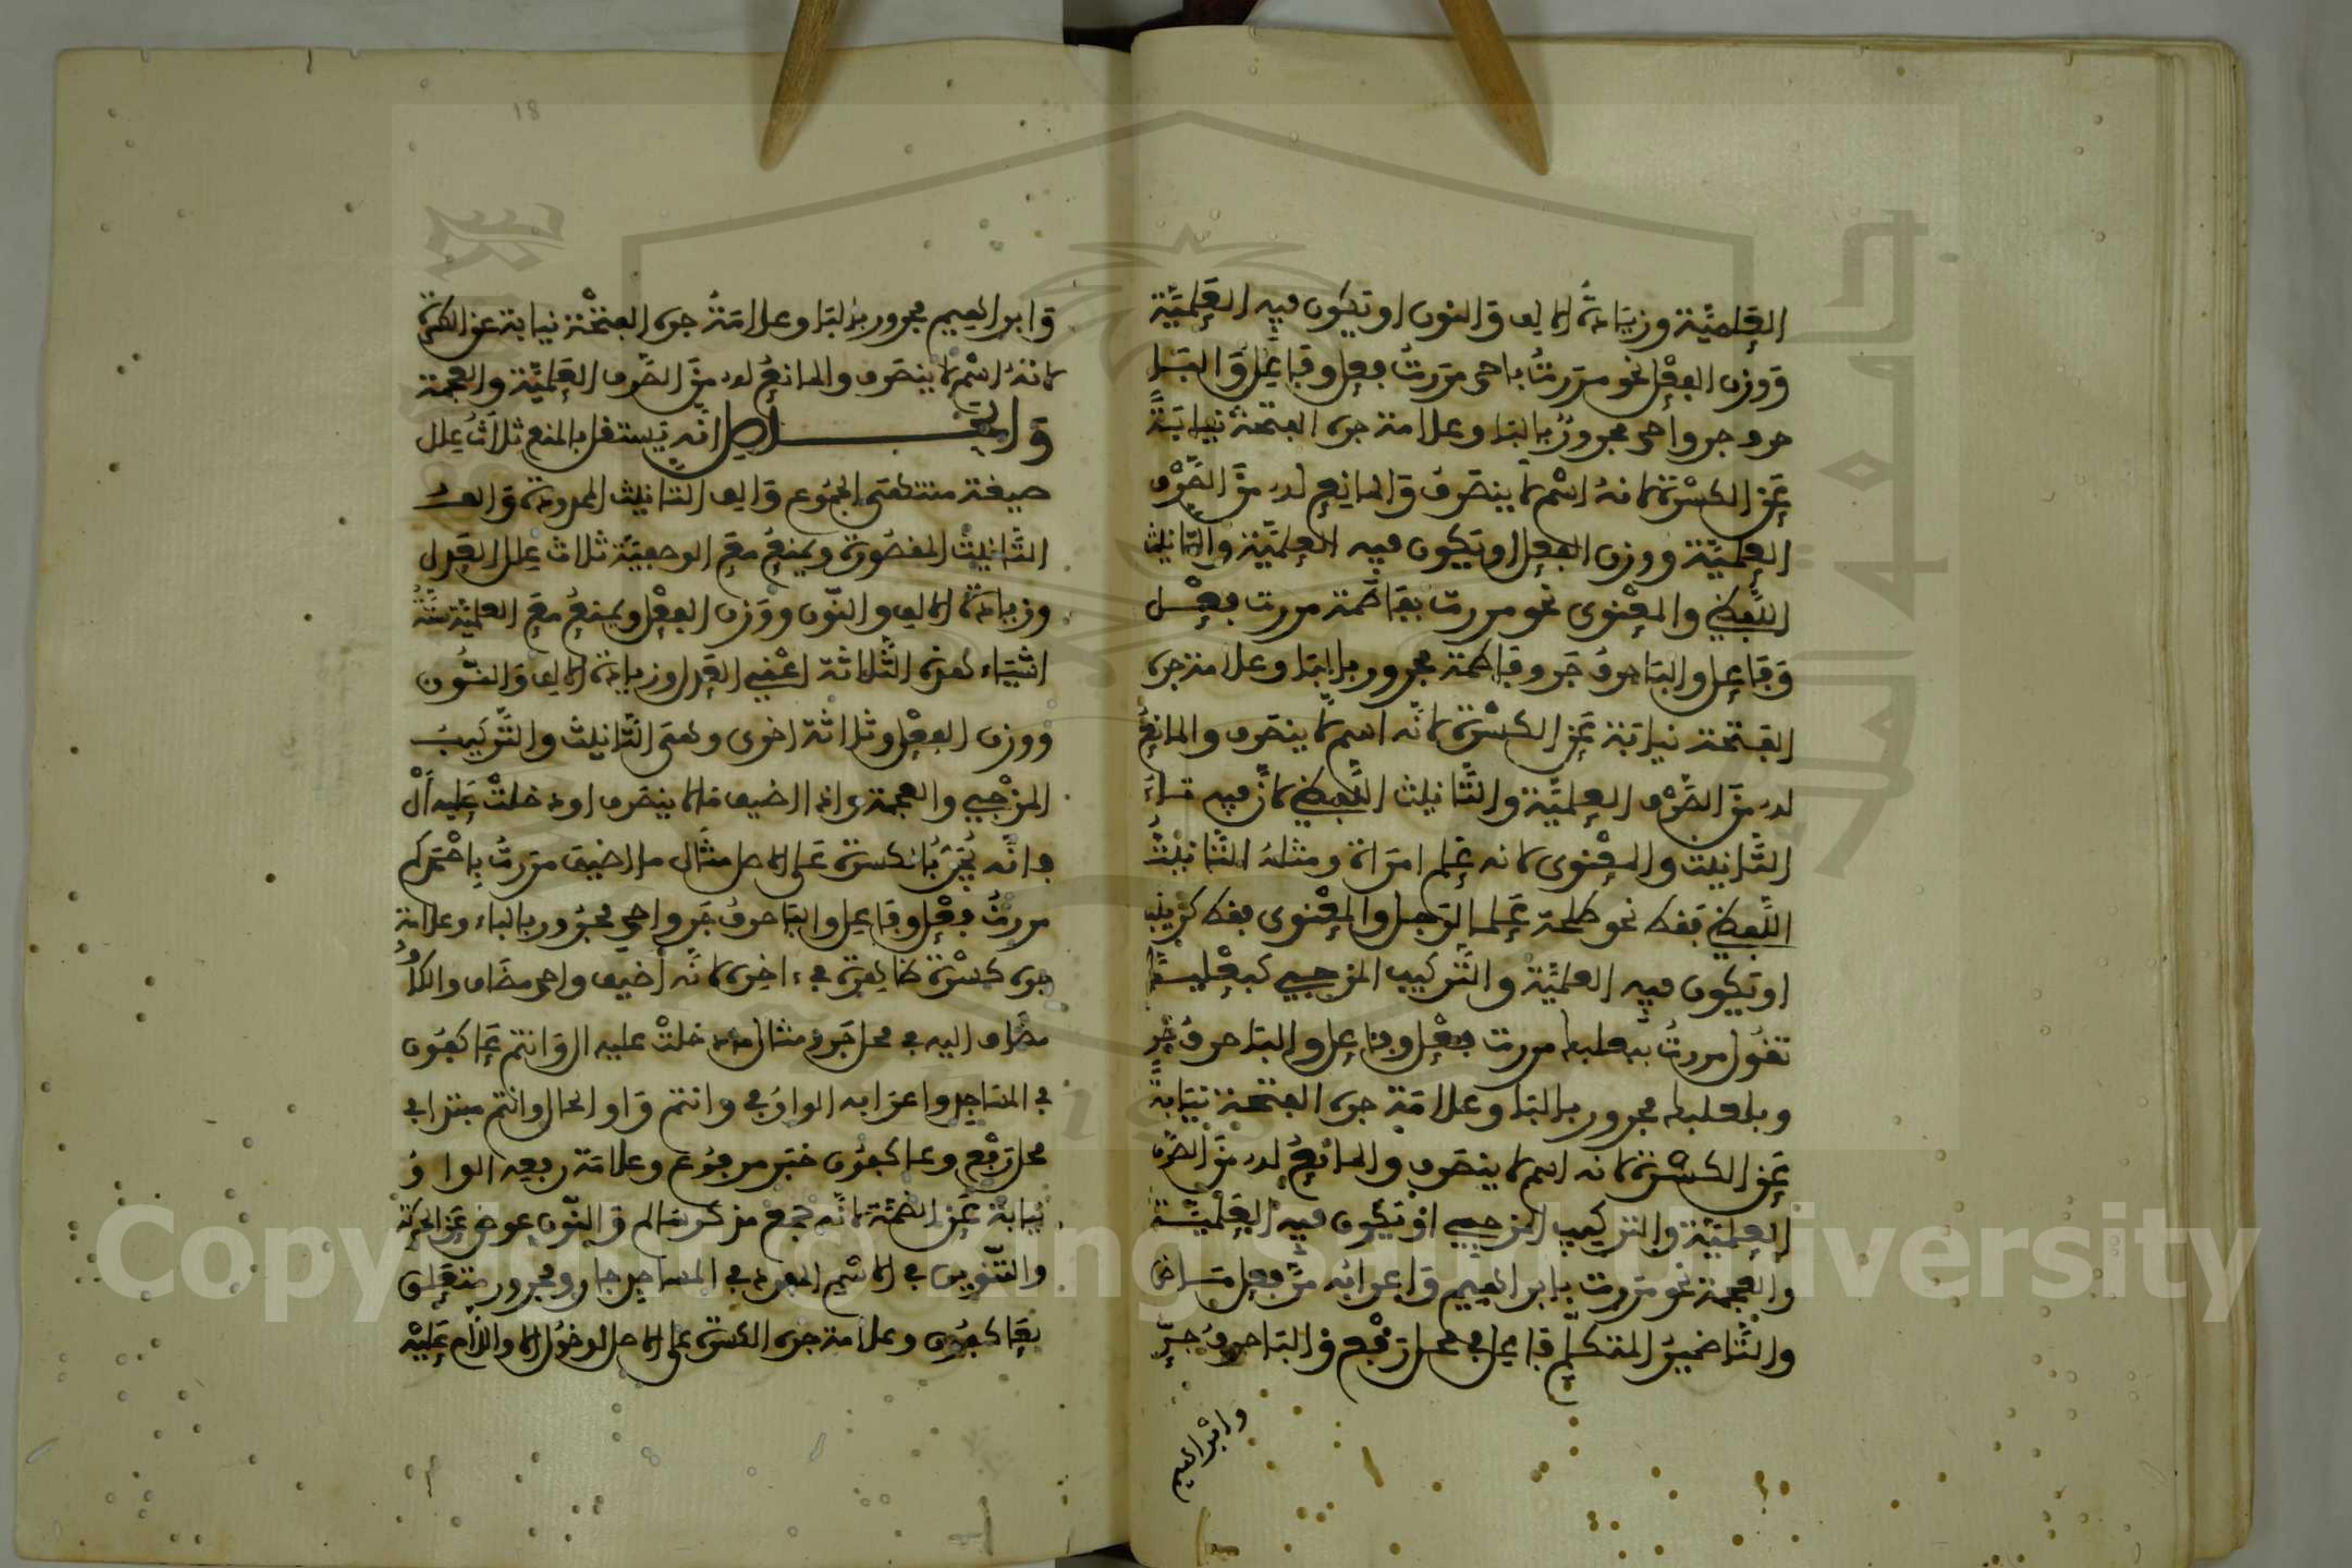 العلمية وزيادة الالف والنون او تكون فيه العلمية
ووزن الفعل نحو مررت باحمد مررت فعل وفاعل والبا
حرف جر واحمد مجرور بالبا وعلامة جره الفتحة نيابة
عن الكسرة لانه اسم لا ينصرف والمانع له من الصرف
العلمية ووزن الفعل او تكون فيه العلمية والتانيث
اللفظي والمعنوى نحو مررت بفاطمة مررت فعل
وفاعل والبا حرف جر وفاطمة مجرور بالبا وعلامة جره
الفتحة نيابة عن الكسرة لانه اسم لا ينصرف والمانع
له من الصرف العلمية والتانيث اللفظي لان فيه تاء
التانيث والمعنوى لانه علم امراة ومثله التانيث
اللفظي فقط نحو طلحة علما لرجل والمعنوى فقط كزينب
او تكون فيه العلمية والتركيب المزجي كبعلبك
تقول مررت ببعلبك مررت فعل وفاعل والبا حرف جر
وبعلبك مجرور بالبا وعلامة جره الفتحة نيابة
عن الكسرة لانه اسم لا ينصرف والمانع له من الصرف
العلمية والتركيب المزجي او تكون فيه العلمية
والعجمة نحو مررت بابراهيم واعرابه مر فعل ماض
والتا ضمير المتكلم فاعل في محل رفع والبا حرف جر
وابراهيم
18
وابراهيم مجرور بالبا وعلامة جره الفتحة نيابة عن الكسرة
لانه اسم لا ينصرف والمانع له من الصرف العلمية والعجمة
والحاصل انه يستقل بالمنع ثلاث علل
صيغة منتهى الجموع والف التانيث الممدودة والف
التانيث المقصورة ويمنع مع الوصفية ثلاث علل العدل
وزيادة الالف والنون ووزن الفعل ويمنع مع العلمية ستة
اشياء هذه الثلاثة اعني العدل وزيادة الالف والنون
ووزن الفعل وثلاثة اخرى وهي التانيث والتركيب
المزجي والعجمة واذا اضيف مالا ينصرف او دخلت عليه ال
فانه يجر بالكسرة على الاصل مثال ما اضيف مررت باحمدكم
مررت فعل وفاعل والبا حرف جر واحمد مجرور بالباء وعلامة
جره كسرة ظاهرة في ءاخره لانه اضيف واحمد مضاف والكاف
مضاف اليه في محل جر ومثال ما دخلت عليه ال وانتم عاكفون
في المساجد واعرابه الواو في وانتم واو الحال وانتم مبتدا في
محل رفع وعاكفون خبر مرفوع وعلامة رفعه الواو
نيابة عن الضمة لانه جمع مذكر سالم والنون عوض عن الحركة
والتنوين في الاسم المفرد في المساجد جار ومجرور متعلق
بعاكفون وعلامة جره الكسرة على الاصل لدخول الالف واللام عليه
Copyright © King Saud University